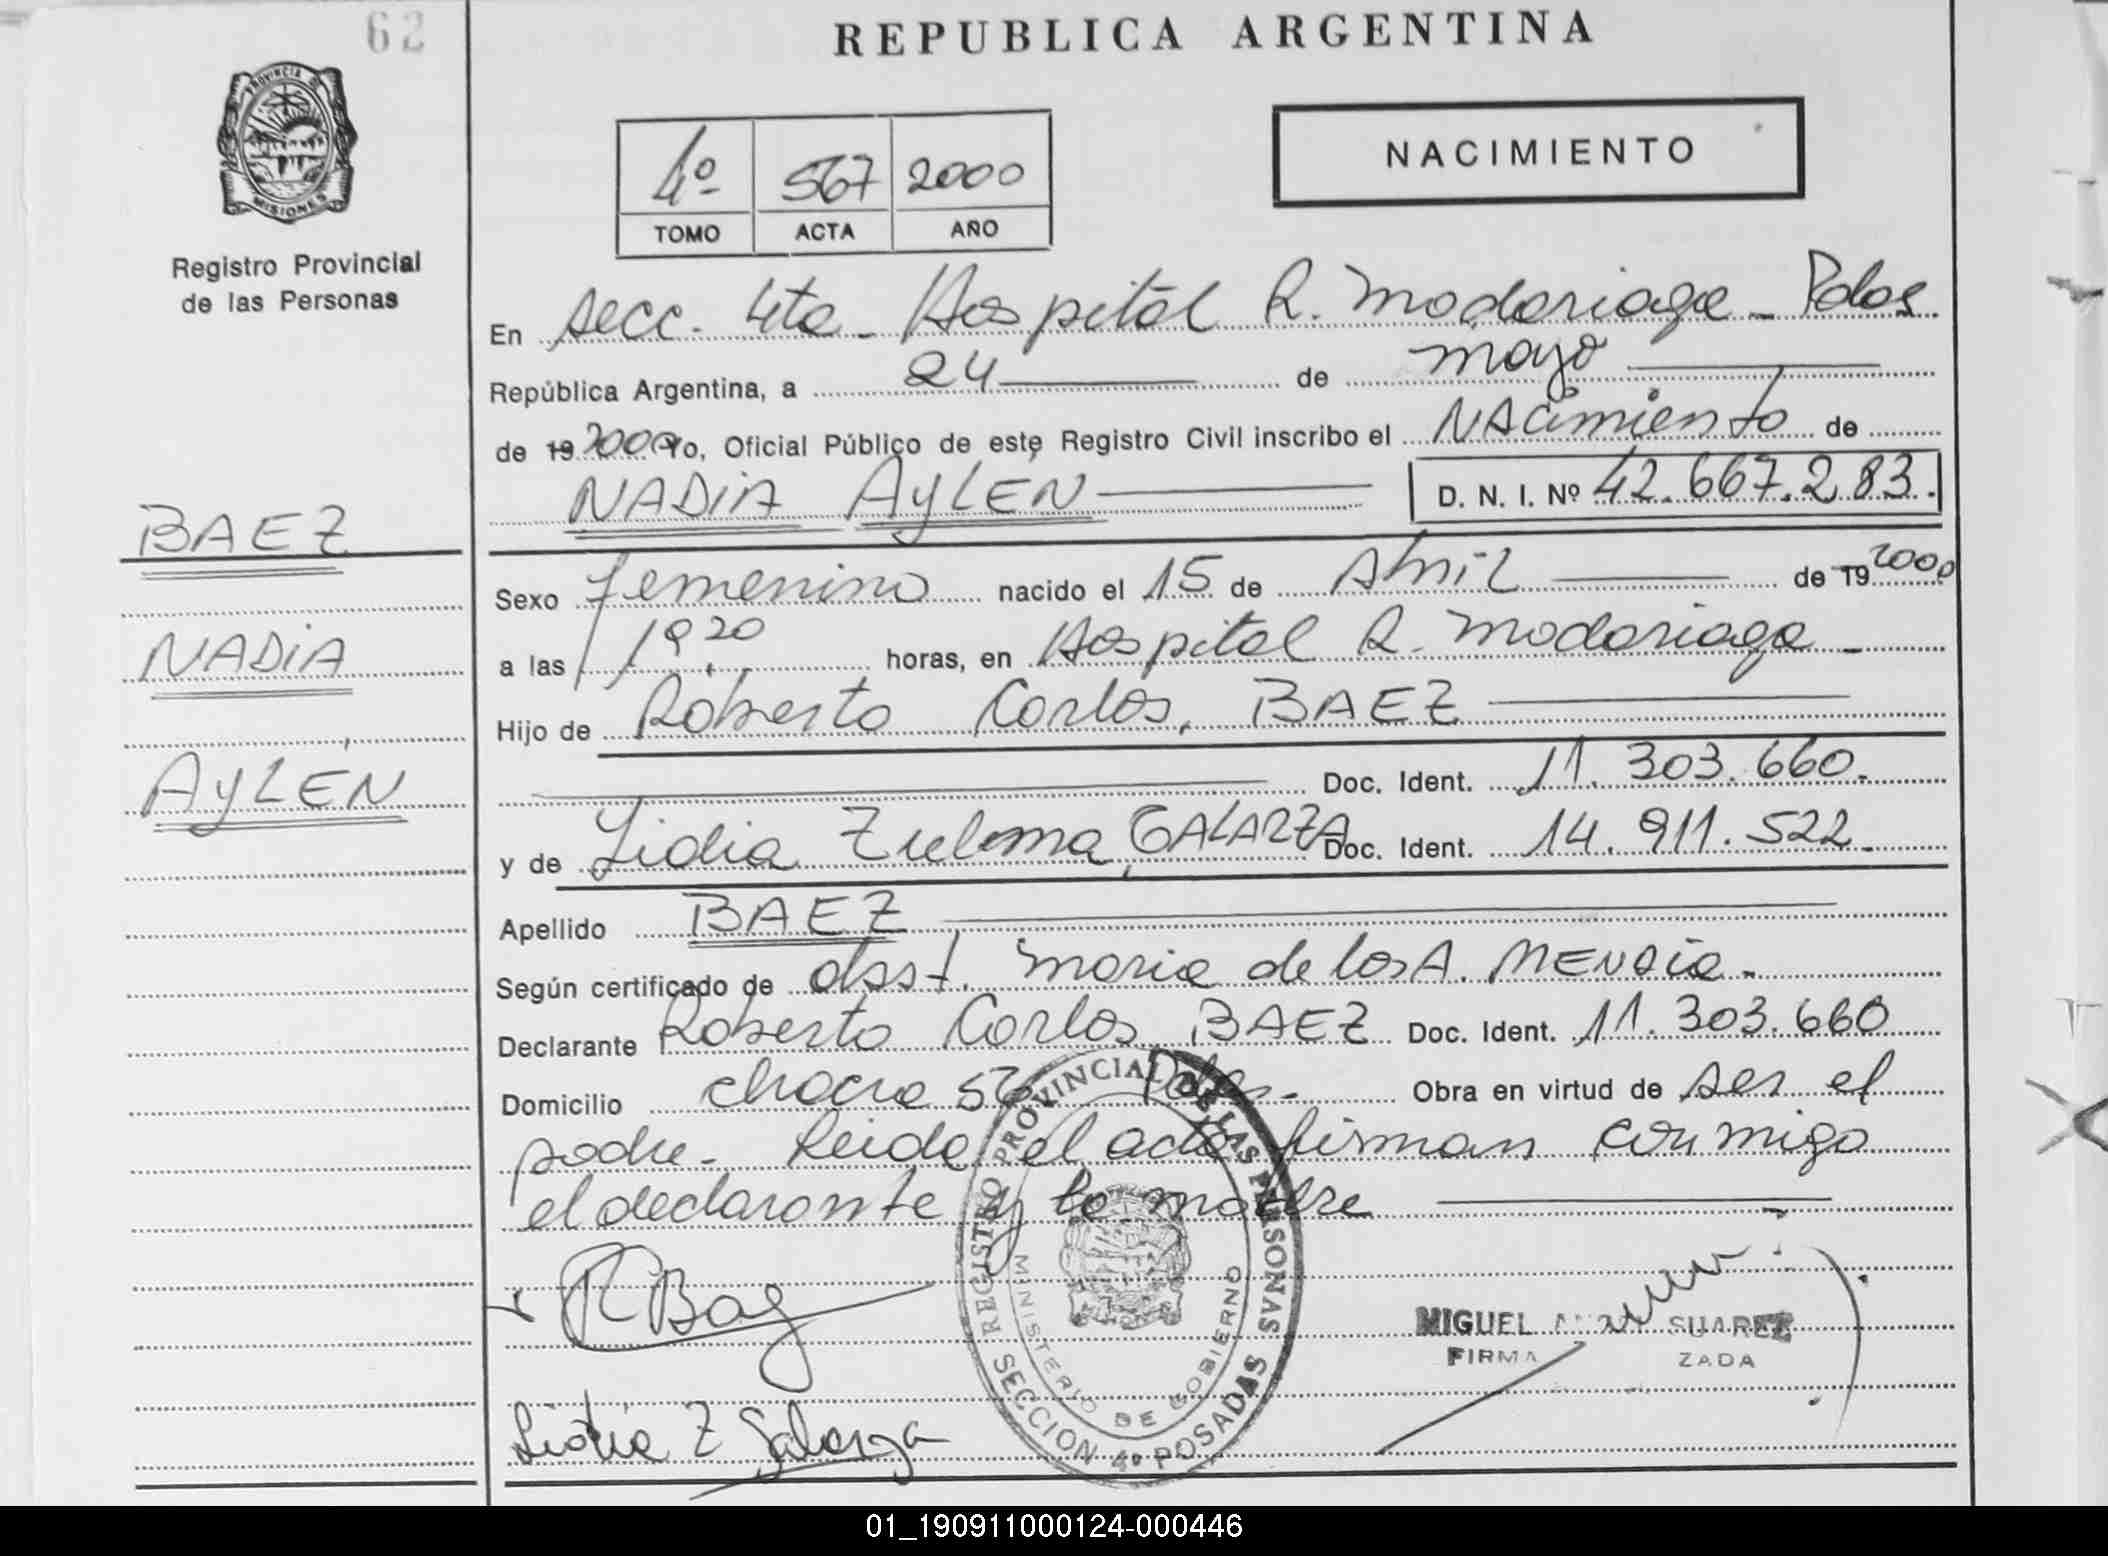 62
REPUBLICA ARGENTINA
PROVINCIA D
MISIONES
Registro Provincial
de las Personas
4º 567 2000
TOMO ACTA AÑO
NACIMIENTO
En Secc. 4ta - Hospital R. Madariaga - Pdas.
República Argentina, a 24 de mayo
de 19 2000 Yo, Oficial Público de este Registro Civil inscribo el NAcimiento de
NADIA AYLEN D. N. I. Nº 42.667.283.
BAEZ
NADIA
AYLEN
Sexo femenino nacido el 15 de Abril de 19 2000
a las horas, en Hospital R. Madariaga -
Hijo de Roberto Carlos, BAEZ
Doc. Ident. 11.303.660.
y de Lidia Zulema, GALARZA Doc. Ident. 14.911.522.
Apellido BAEZ
Según certificado de obst. Maria de los A. MENDIA.
Declarante Roberto Carlos BAEZ Doc. Ident. 11.303.660
Domicilio chacra 56 Pdas. Obra en virtud de ser el
padre. Leida el acta firman conmigo
el declarante y la madre
R Baez
Lidia Z Galarza
REGISTRO PROVINCIAL DE LAS PERSONAS
MINISTERIO DE GOBIERNO
SECCION 4º POSADAS
MIGUEL SUAREZ
FIRMA ZADA
01_190911000124-000446